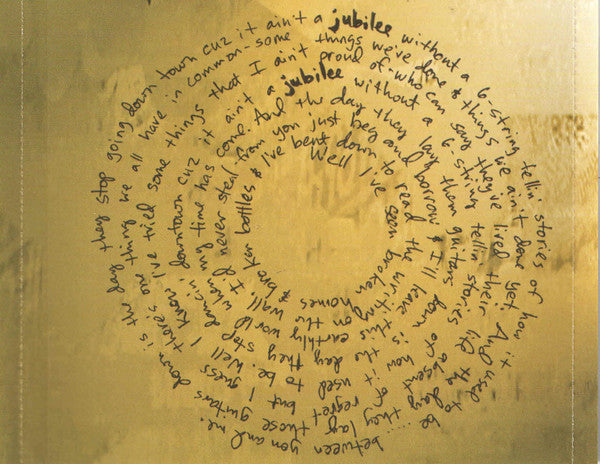 Well I've seen broken homes & broken bottles & I've bent down to read the writing on the wall. I'd never steal from you just beg and borrow & I'll leave this earthly world when my time has come. And the day they lay them guitars down is the day they stop dancin downtown cuz it ain't a jubilee without a 6 string tellin stories of how it used to be. Well I know I've tried some things that I ain't proud of - who can say they've lived their life absent of regret but I guess there's one thing we all have in common - some things we've done & things we ain't done yet. And the day they lay those guitars down is the day they stop going down town cuz it ain't a jubilee without a 6-string tellin' stories of how it used to be.... between you and me.